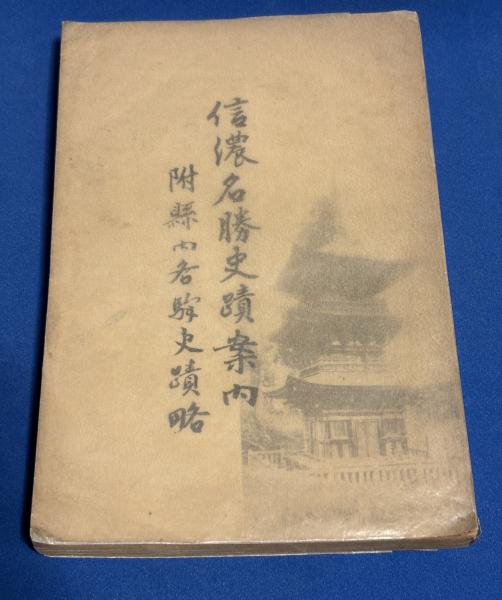 信濃名勝史蹟案内
附縣内各驛史蹟略